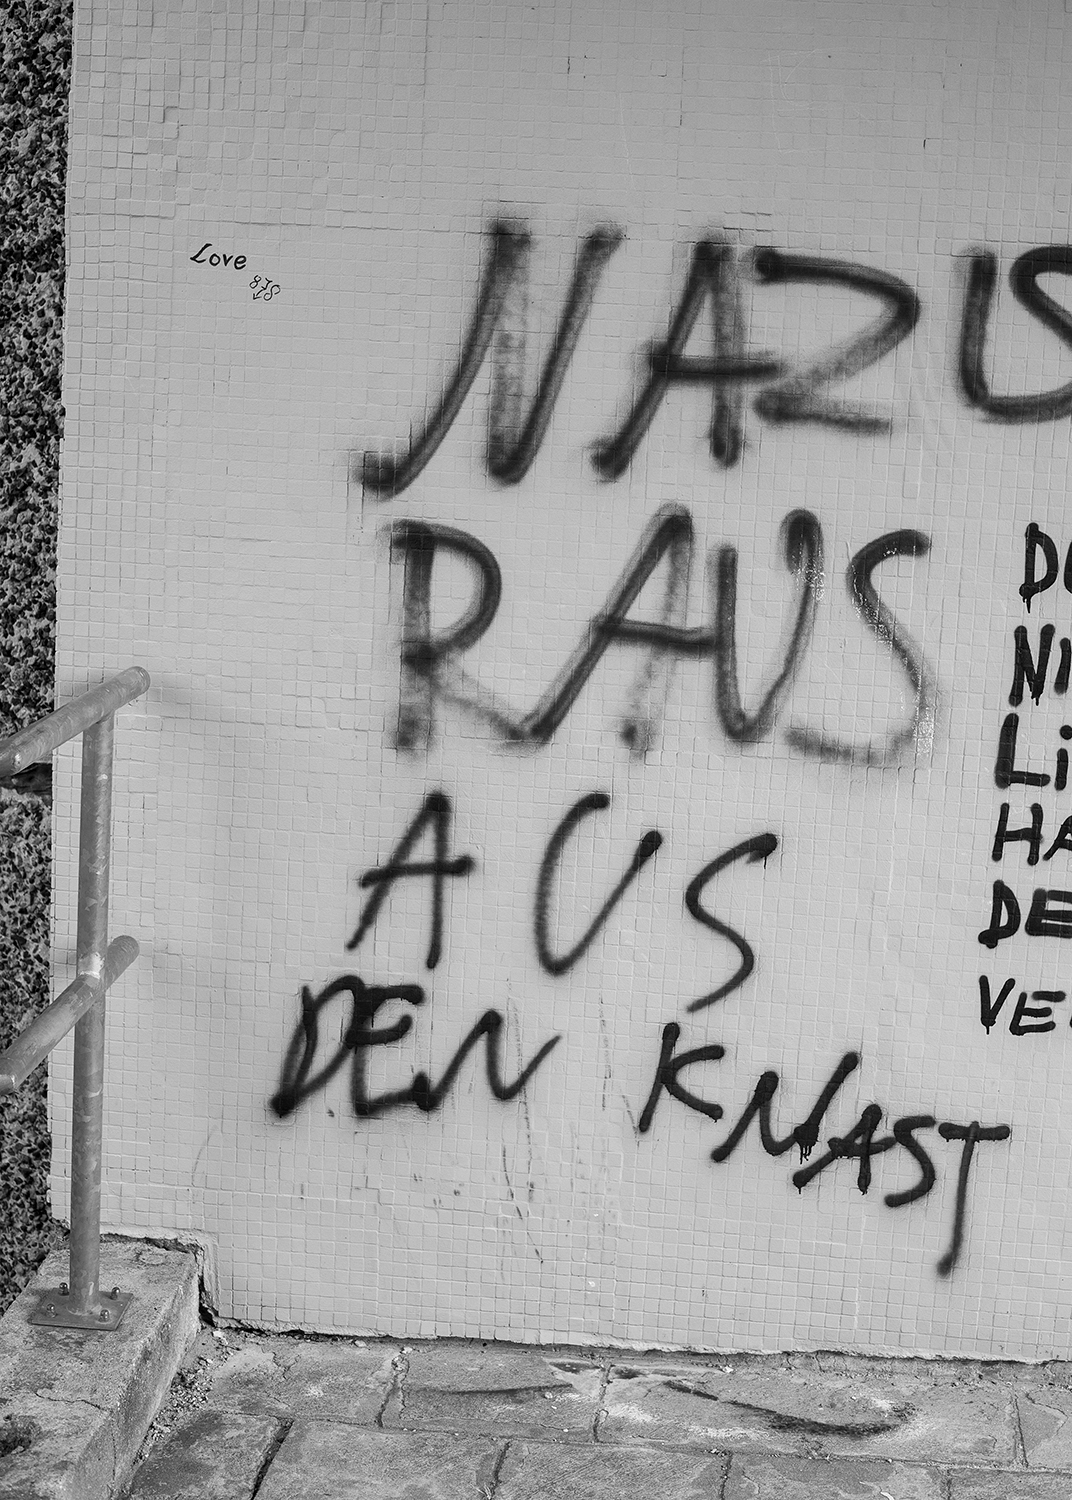 Love
NAZIS
RAUS
AUS
DEN KNAST
DU
NI
Li
HA
DE
VE